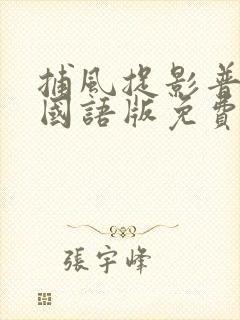 捕風捉影普
國語版免費
張宇峰